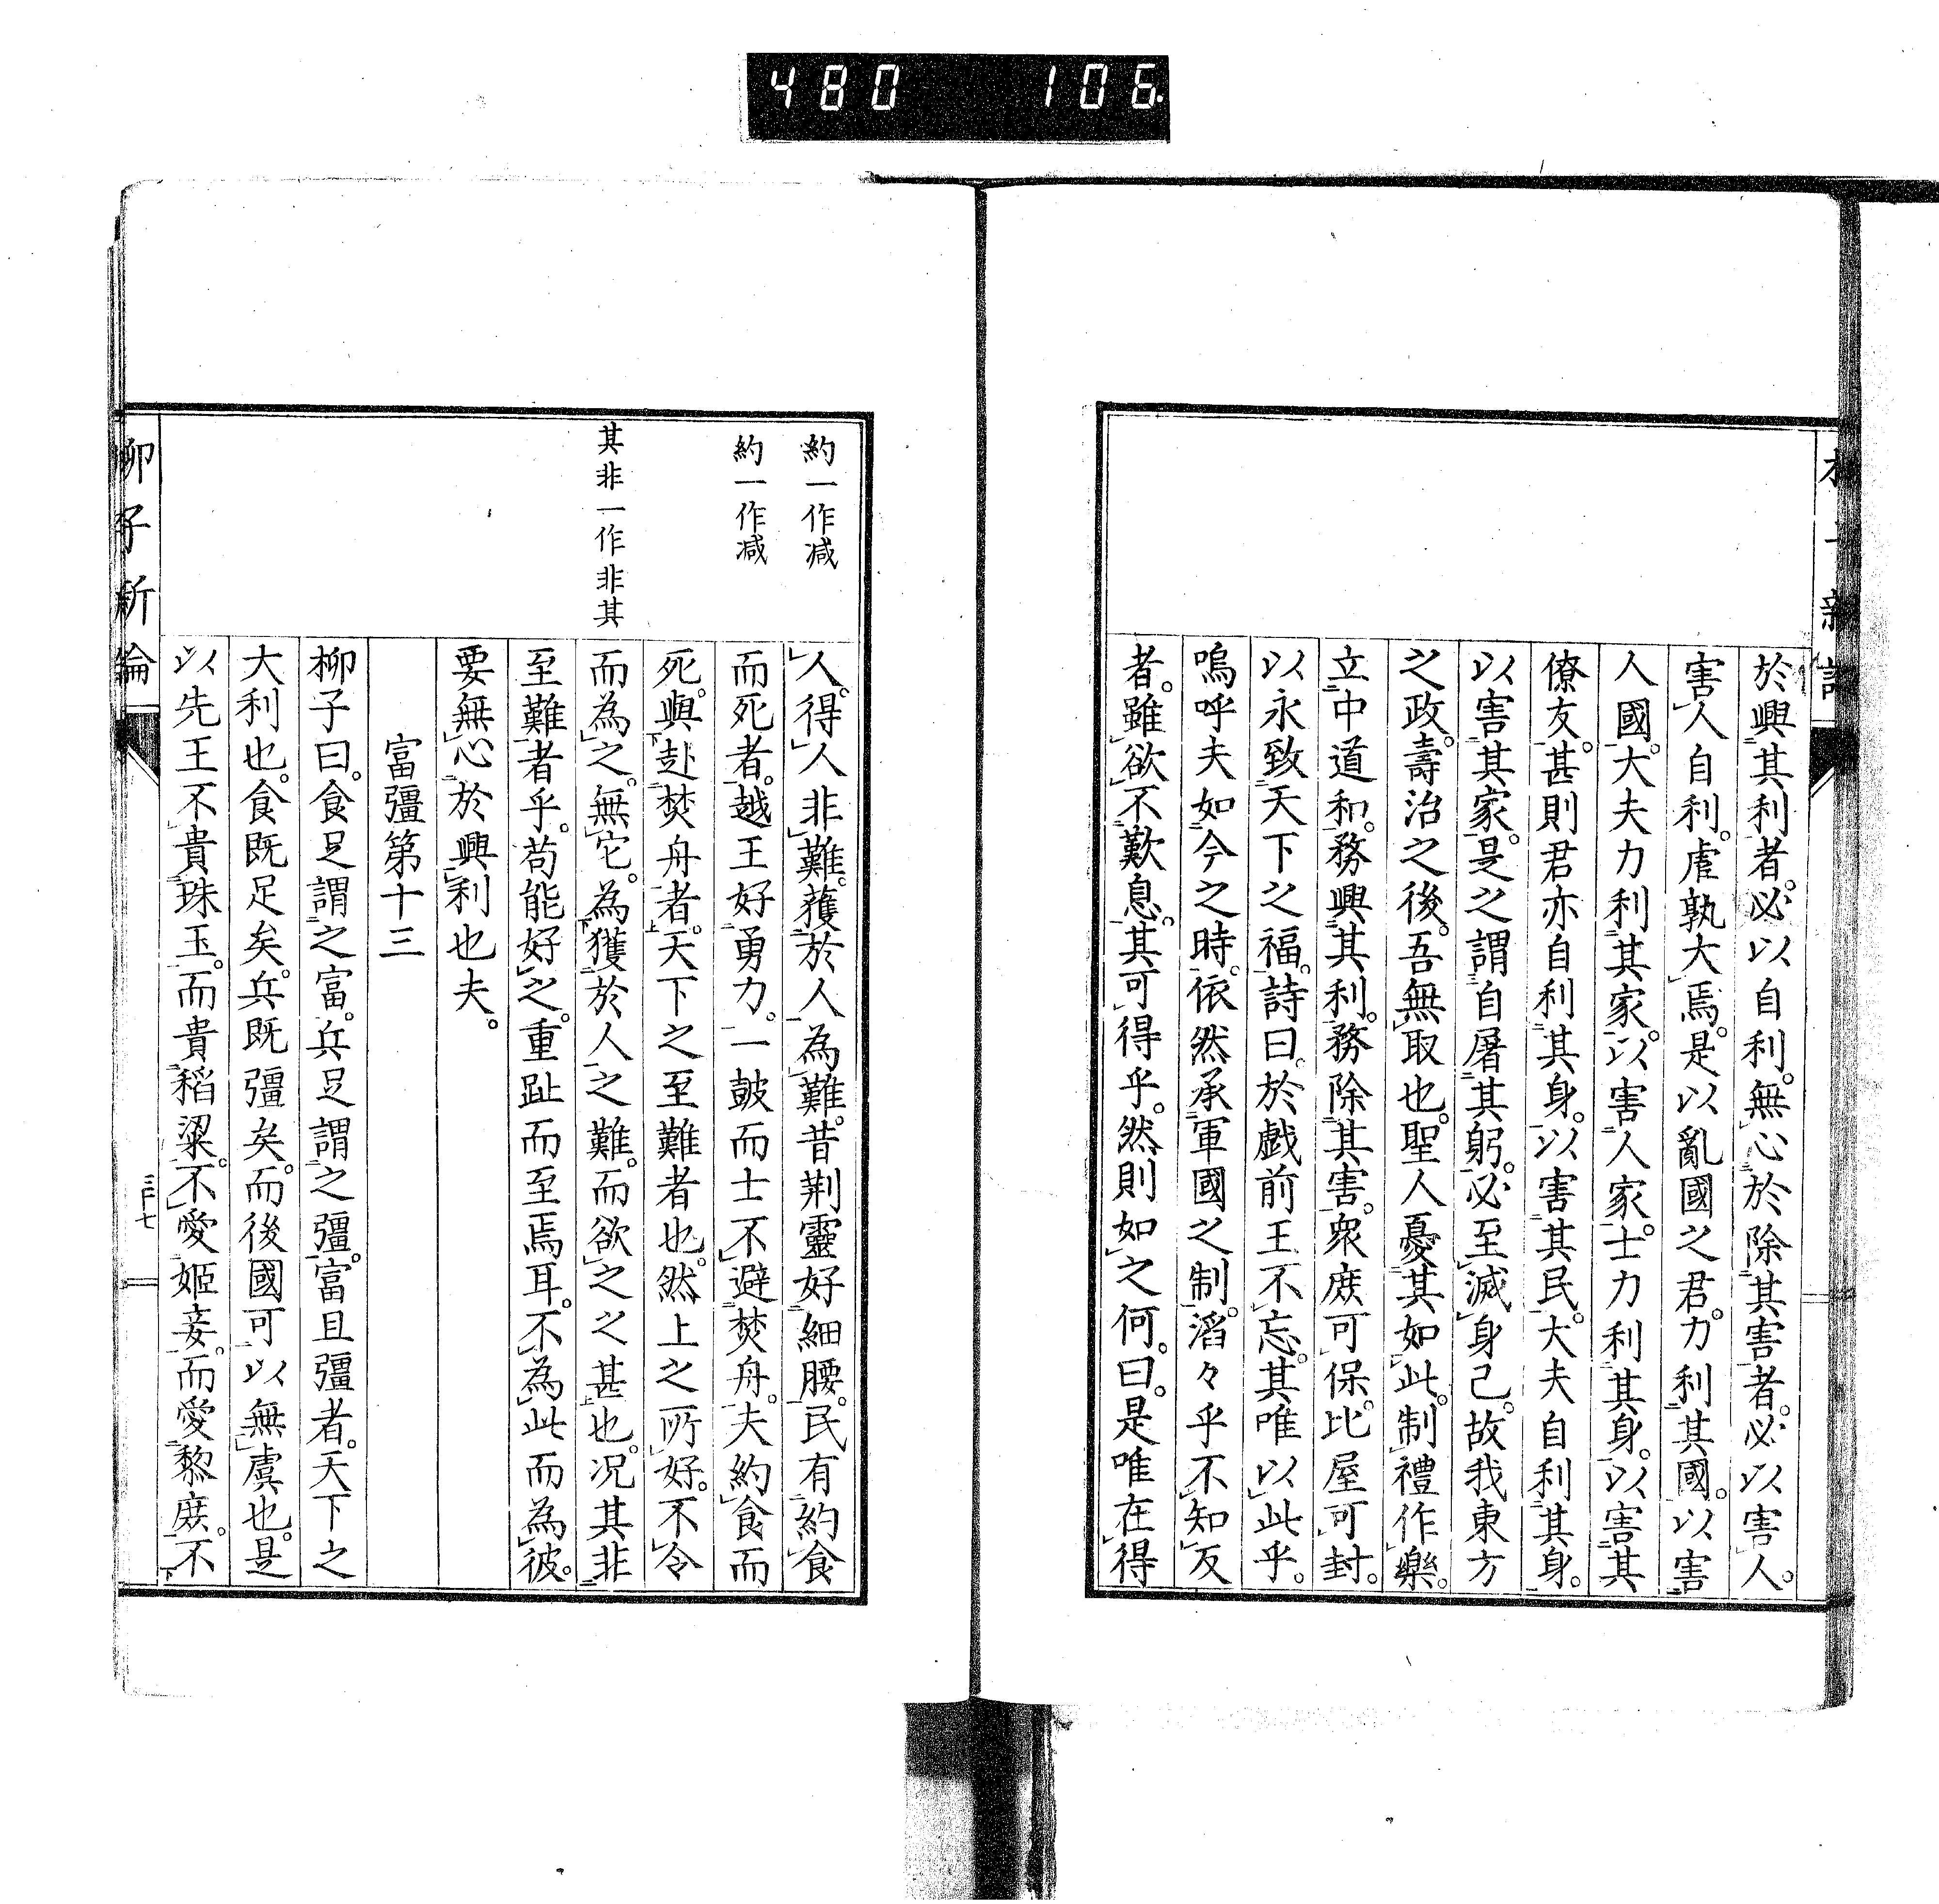 480 106.
於興其利者。必以自利。無心於除其害者。必以害人。
害人自利。虐孰大焉。是以亂國之君。力利其國。以害
人國。大夫力利其家。以害人家。士力利其身。以害其
僚友。甚則君亦自利其身。以害其民。大夫自利其身。
以害其家。是之謂自屠其躬。必至滅身已。故我東方
之政。壽治之後。吾無取也。聖人憂其如此。制禮作樂。
立中道和。務興其利。務除其害。衆庶可保。比屋可封。
以永致天下之福。詩曰。於戲前王不忘。其唯以此乎。
嗚呼夫如今之時。依然承軍國之制。滔々乎不知反
者。雖欲不歎息。其可得乎。然則如之何。曰。是唯在得
約一作减
約一作减
其非一作非其
人。得人非難。獲於人為難。昔荆靈好細腰。民有約食
而死者。越王好勇力。一鼓而士不避焚舟。夫約食而
死。與赴焚舟者。天下之至難者也。然上之所好。不令
而為之。無它。為獲於人之難。而欲之之甚也。况其非
至難者乎。苟能好之。重趾而至焉耳。不為此而為彼。
要無心於興利也夫。
富彊第十三
柳子曰。食足謂之富。兵足謂之彊。富且彊者。天下之
大利也。食既足矣。兵既彊矣。而後國可以無虞也。是
以先王不貴珠玉。而貴稻粱。不愛姬妾。而愛黎庶。不
柳子新論
三十七